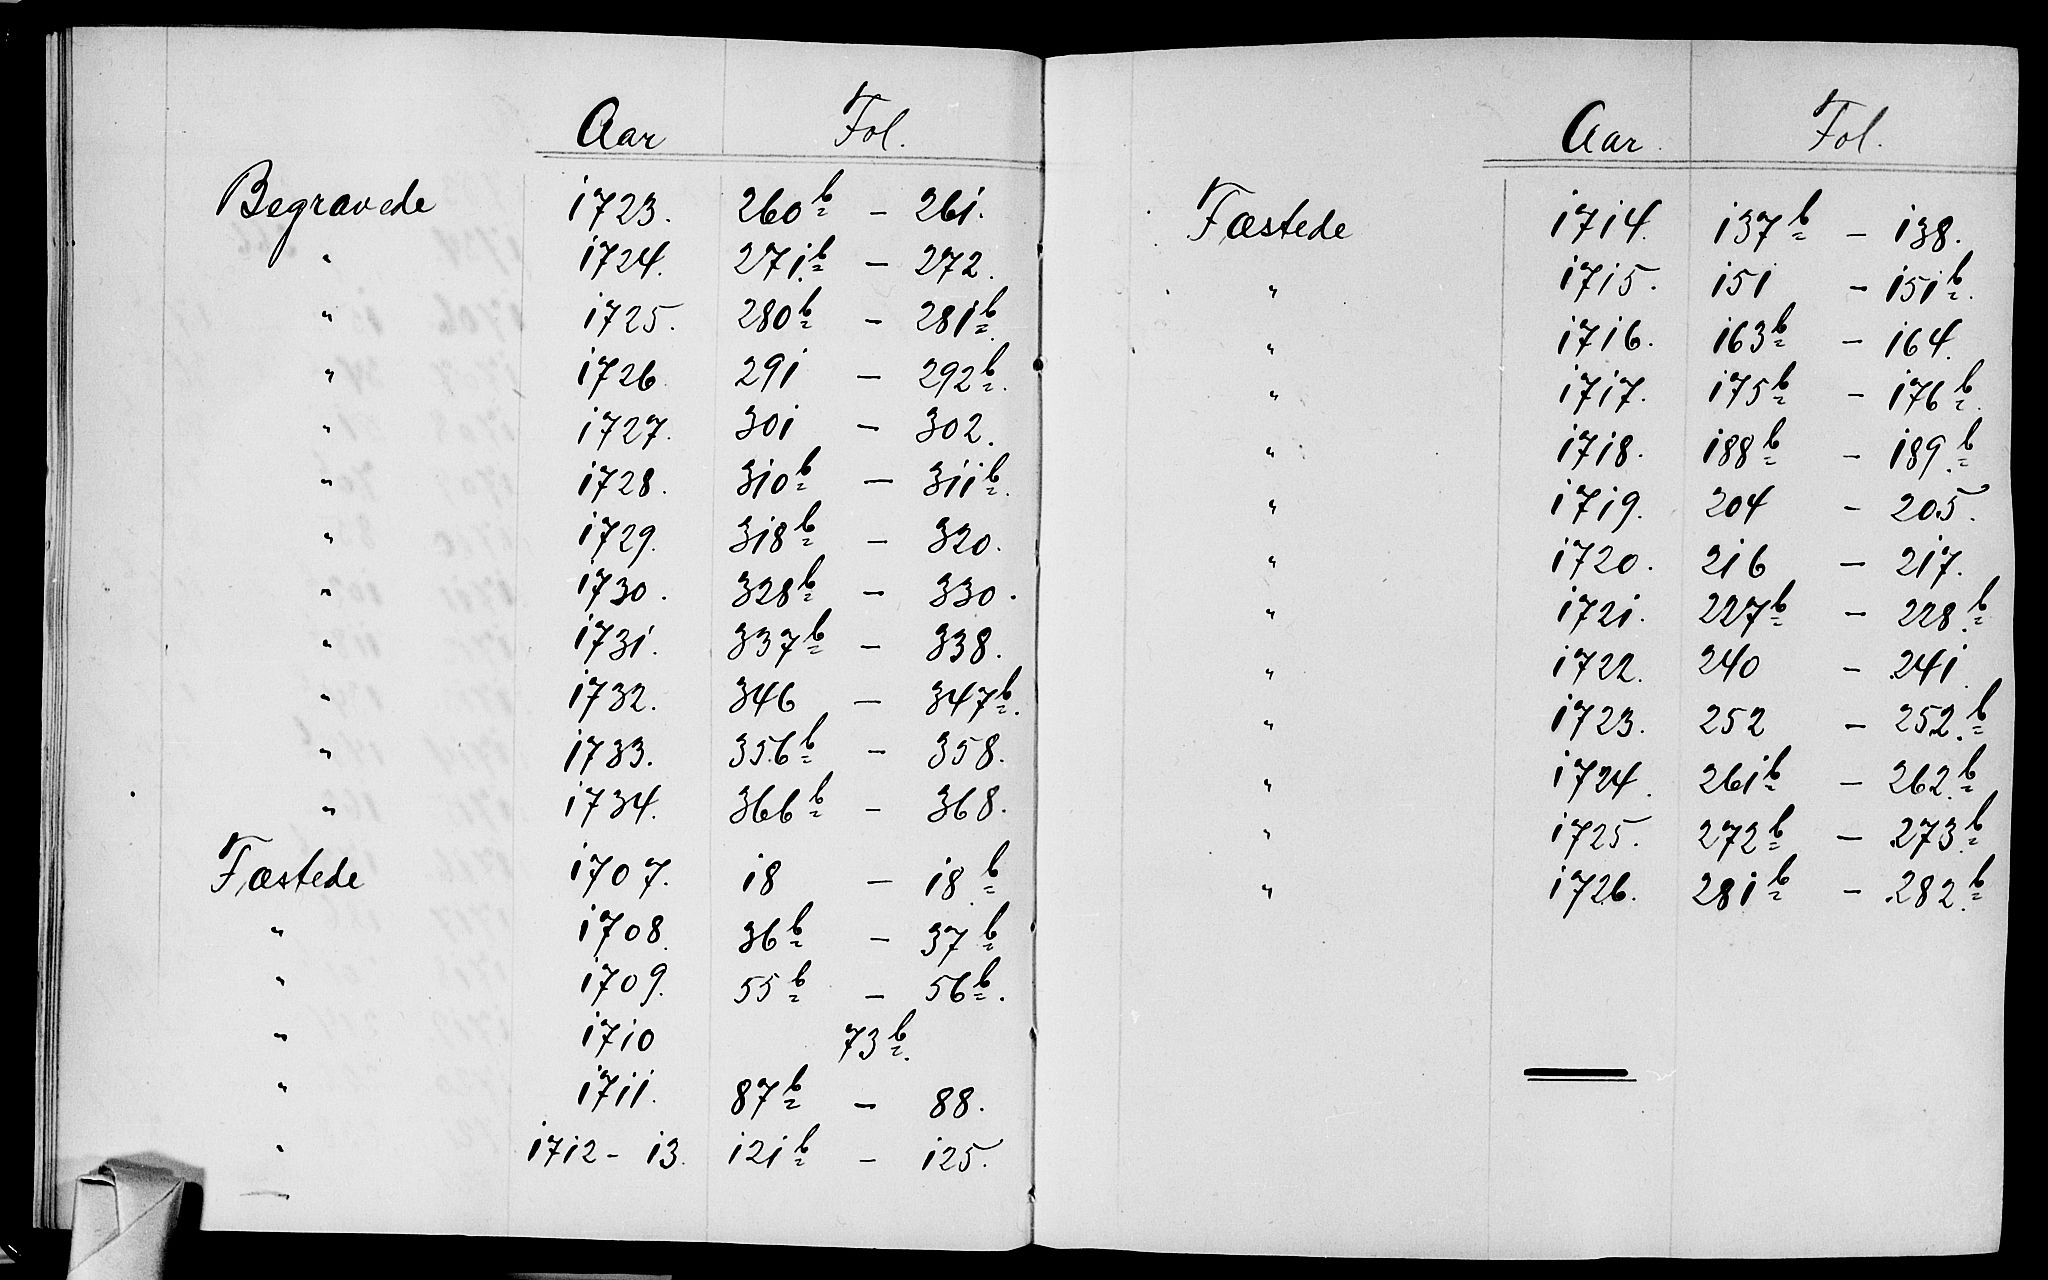 Aar Fol.
Begravede 1723. 260b - 261.
" 1724. 271b - 272.
" 1725. 280b - 281b.
" 1726. 291 - 292b.
" 1727. 301 - 302.
" 1728. 310b - 311b.
" 1729. 318b - 320.
" 1730. 328b - 330.
" 1731. 337b - 338.
" 1732. 346 - 347b.
" 1733. 356b - 358.
" 1734. 366b - 368.
Fæstede 1707. 18 - 18b
" 1708. 36b - 37b
" 1709. 55b - 56b.
" 1710 73b.
" 1711. 87b - 88.
" 1712-13. 121b - 125.
Aar. Fol.
Fæstede 1714. 137b - 138.
" 1715. 151 - 151b.
" 1716. 163b - 164.
" 1717. 175b - 176b.
" 1718. 188b - 189b.
" 1719. 204 - 205.
" 1720. 216 - 217.
" 1721. 227b - 228b.
" 1722. 240 - 241.
" 1723. 252 - 252b.
" 1724. 261b - 262b.
" 1725. 272b - 273b.
" 1726. 281b - 282b.